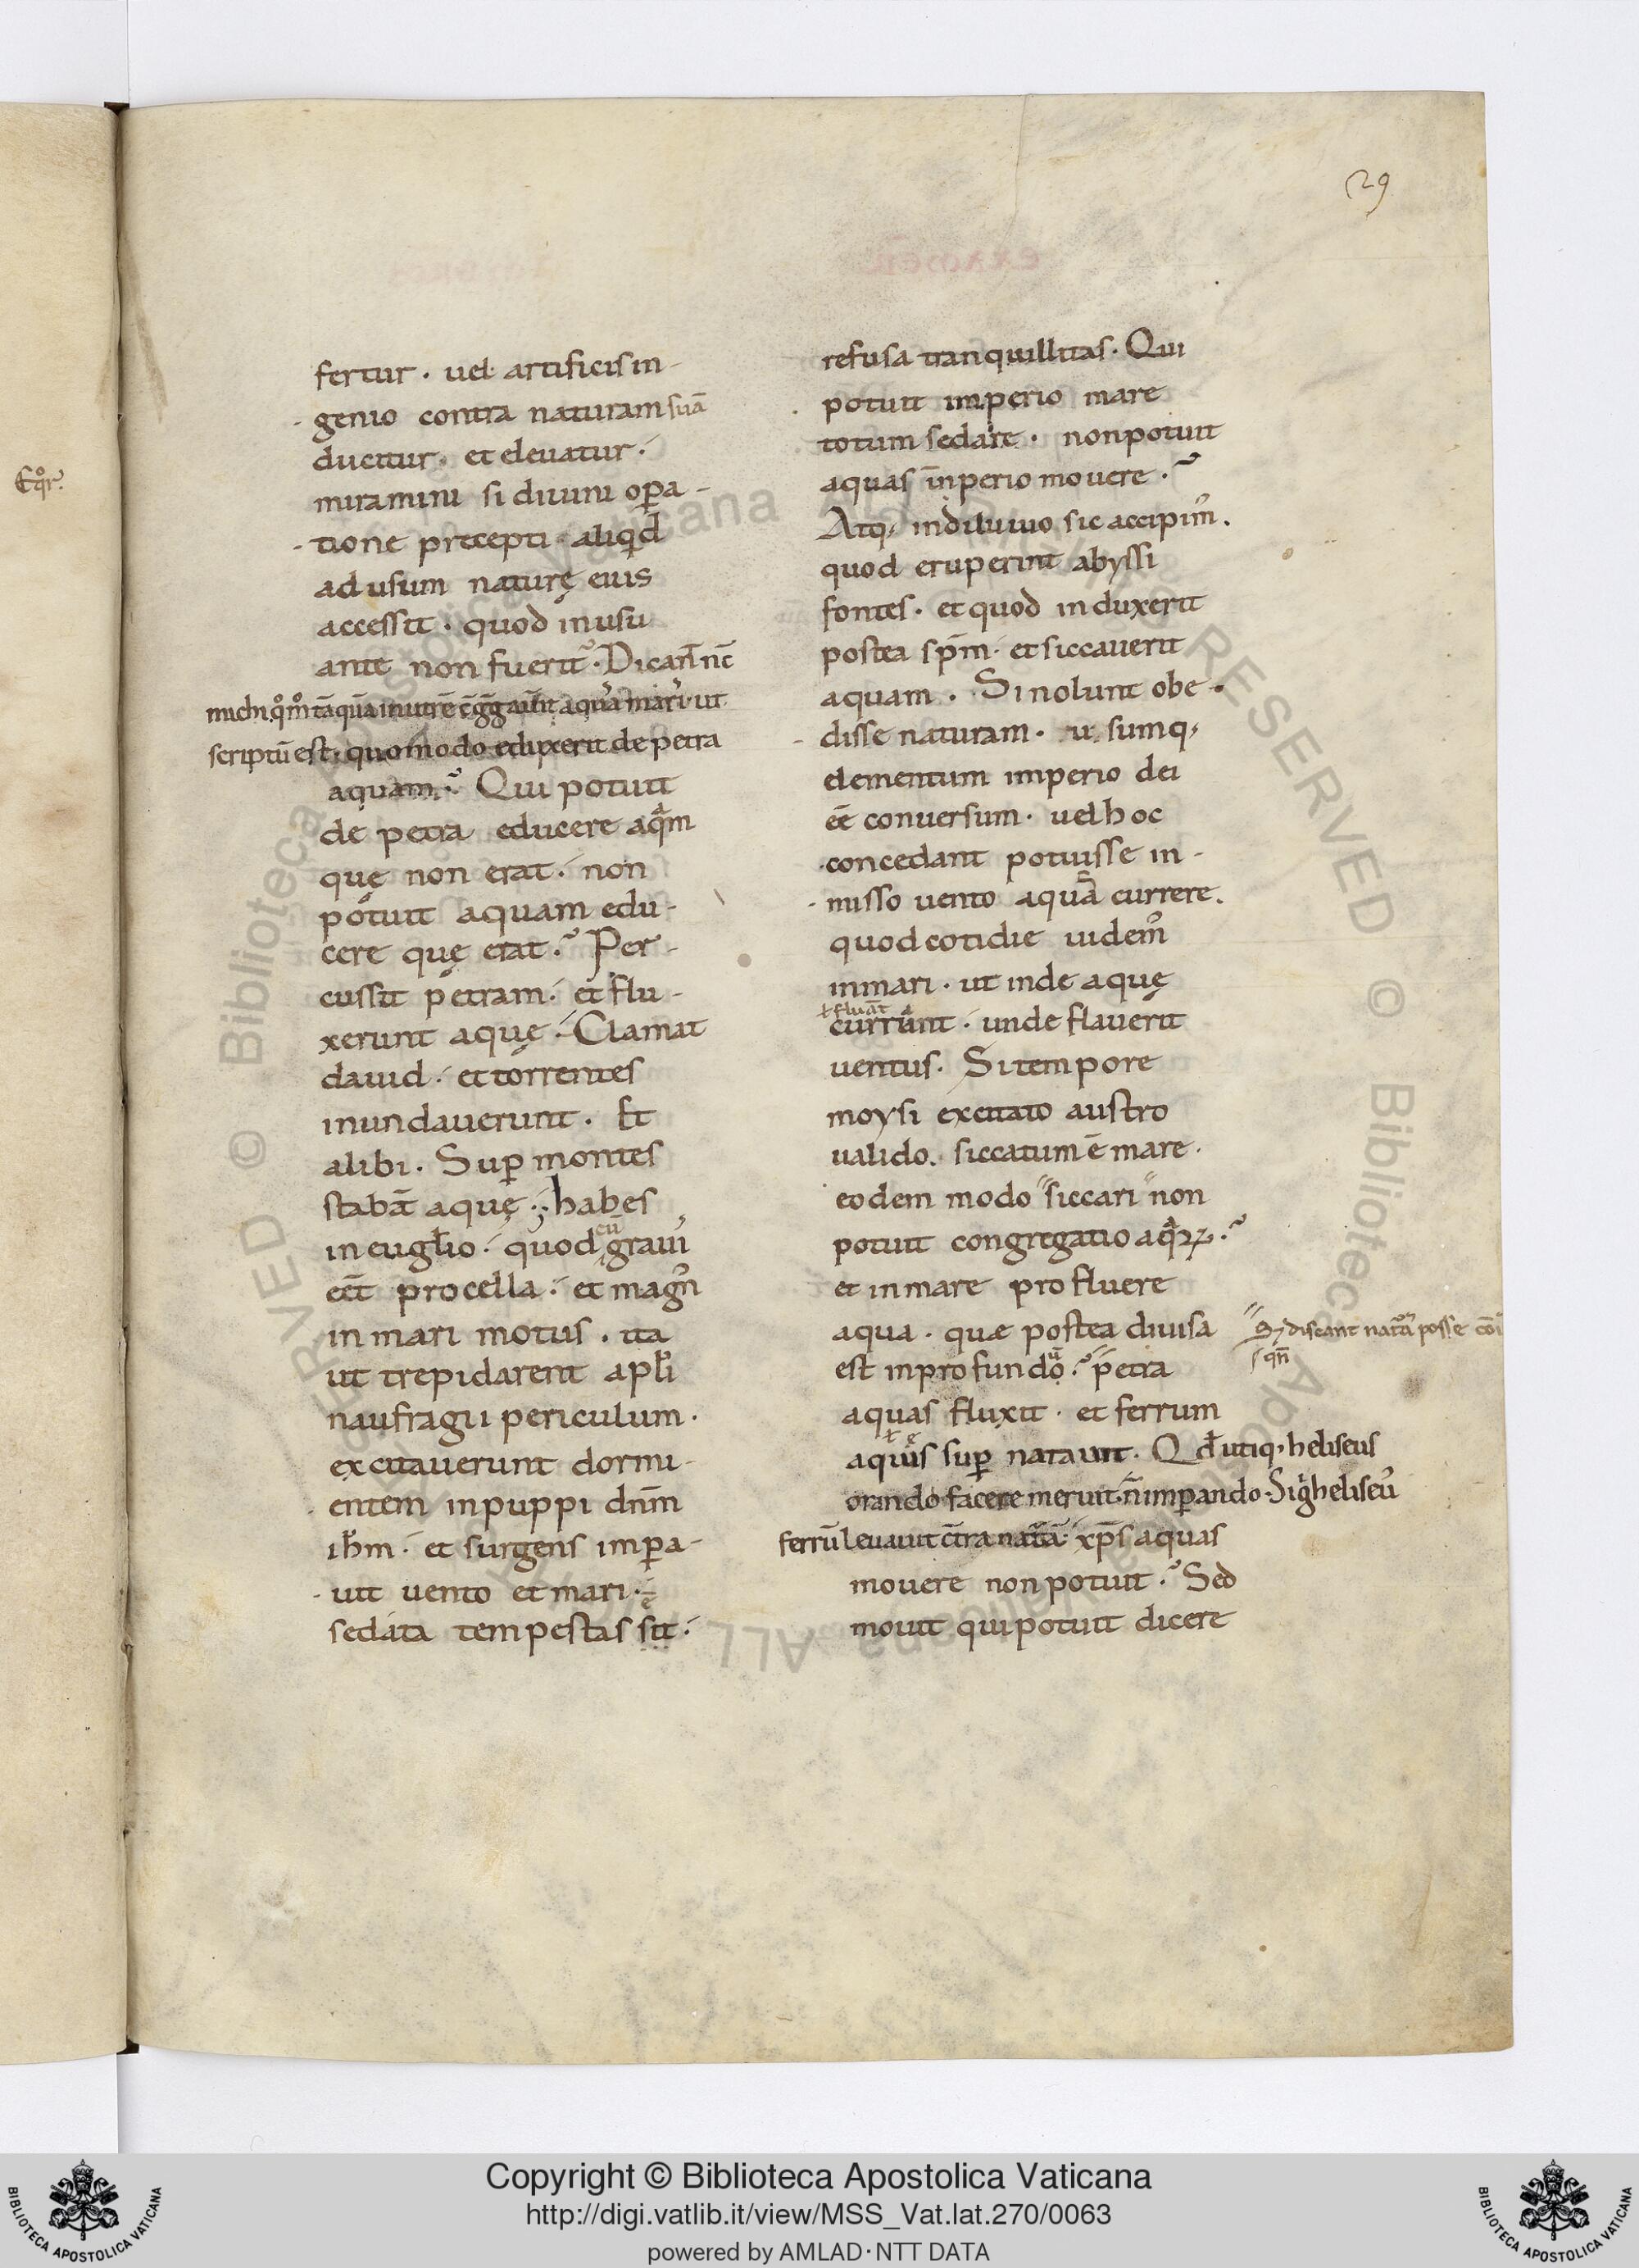 29
Eqr̃.
fertur . uel artificis in-
genio contra naturam suā
ducitur . et eleuatur .
miramini si diuini oꝑa-
tione precepti aliqd
ad usum naturę eius
accessit . quod in usu
ante non fuerit . Dicant̄ nc̄
michi qᵒmᵒ
scriptū est . quomodo eduxerit de petra
aquam . Qui potuit
de petra educere aqͣm
quę non erat . non
potuit aquam edu-
cere quę erat . Per-
cussit petram . et flu-
xerunt aquę . Clamat
dauid . et torrentes
inundauerunt . Et
alibi . Suꝑ montes
stabāt aquę . habes
in euglio . quod cū grauis
eēt procella . et magn᾽
in mari motus . ita
ut trepidarent apl̄i
naufragii periculum .
excitauerunt dormi-
entem in puppi dnm̄
ihm̄ . et surgens imꝑa-
uit uento et mari . ē
sedata tempestas sit .
refusa tranquillitas . Qui
potuit imperio mare
totum sedare . non potuit
aquas īnperio mouere .
Atq; in diluuio sic accipim᾽ .
quod eruperint abyssi
fontes . et quod induxerit
postea spm̄ . et siccauerit
aquam . Si nolunt obe-
disse naturam . u sumq;
elementum imperio dei
eē conuersum . uel hoc
concedant potuisse in-
misso uento aquā currere .
quod cotidie uidem᾽
in mari . ut inde aquę
ł fluāt
currant . unde flauerit
uentus . Si tempore
moysi excitato austro
ualido . siccatum ē mare .
eodem modo siccari non
potuit congregatio aqͣꝝ .
et in mare profluere
aqua . quæ postea diuisa
est in profundo . petra
discant posse
qn̄
aquas fluxit . et ferrum
ł ę
aquis suꝑ natauit . Qd utiq; heliseus
orando facere meruit . n̄ imꝑando . Si g heliseus
ferrū leuauit ct̄ra natᵃā . xp̄s aquas
mouere non potuit . Sed
mouit qui potuit dicere
Copyright © Biblioteca Apostolica Vaticana
http://digi.vatlib.it/view/MSS_Vat.lat.270/0063
powered by AMLAD·NTT DATA
BIBLIOTECA APOSTOLICA VATICANA
BIBLIOTECA APOSTOLICA VATICANA